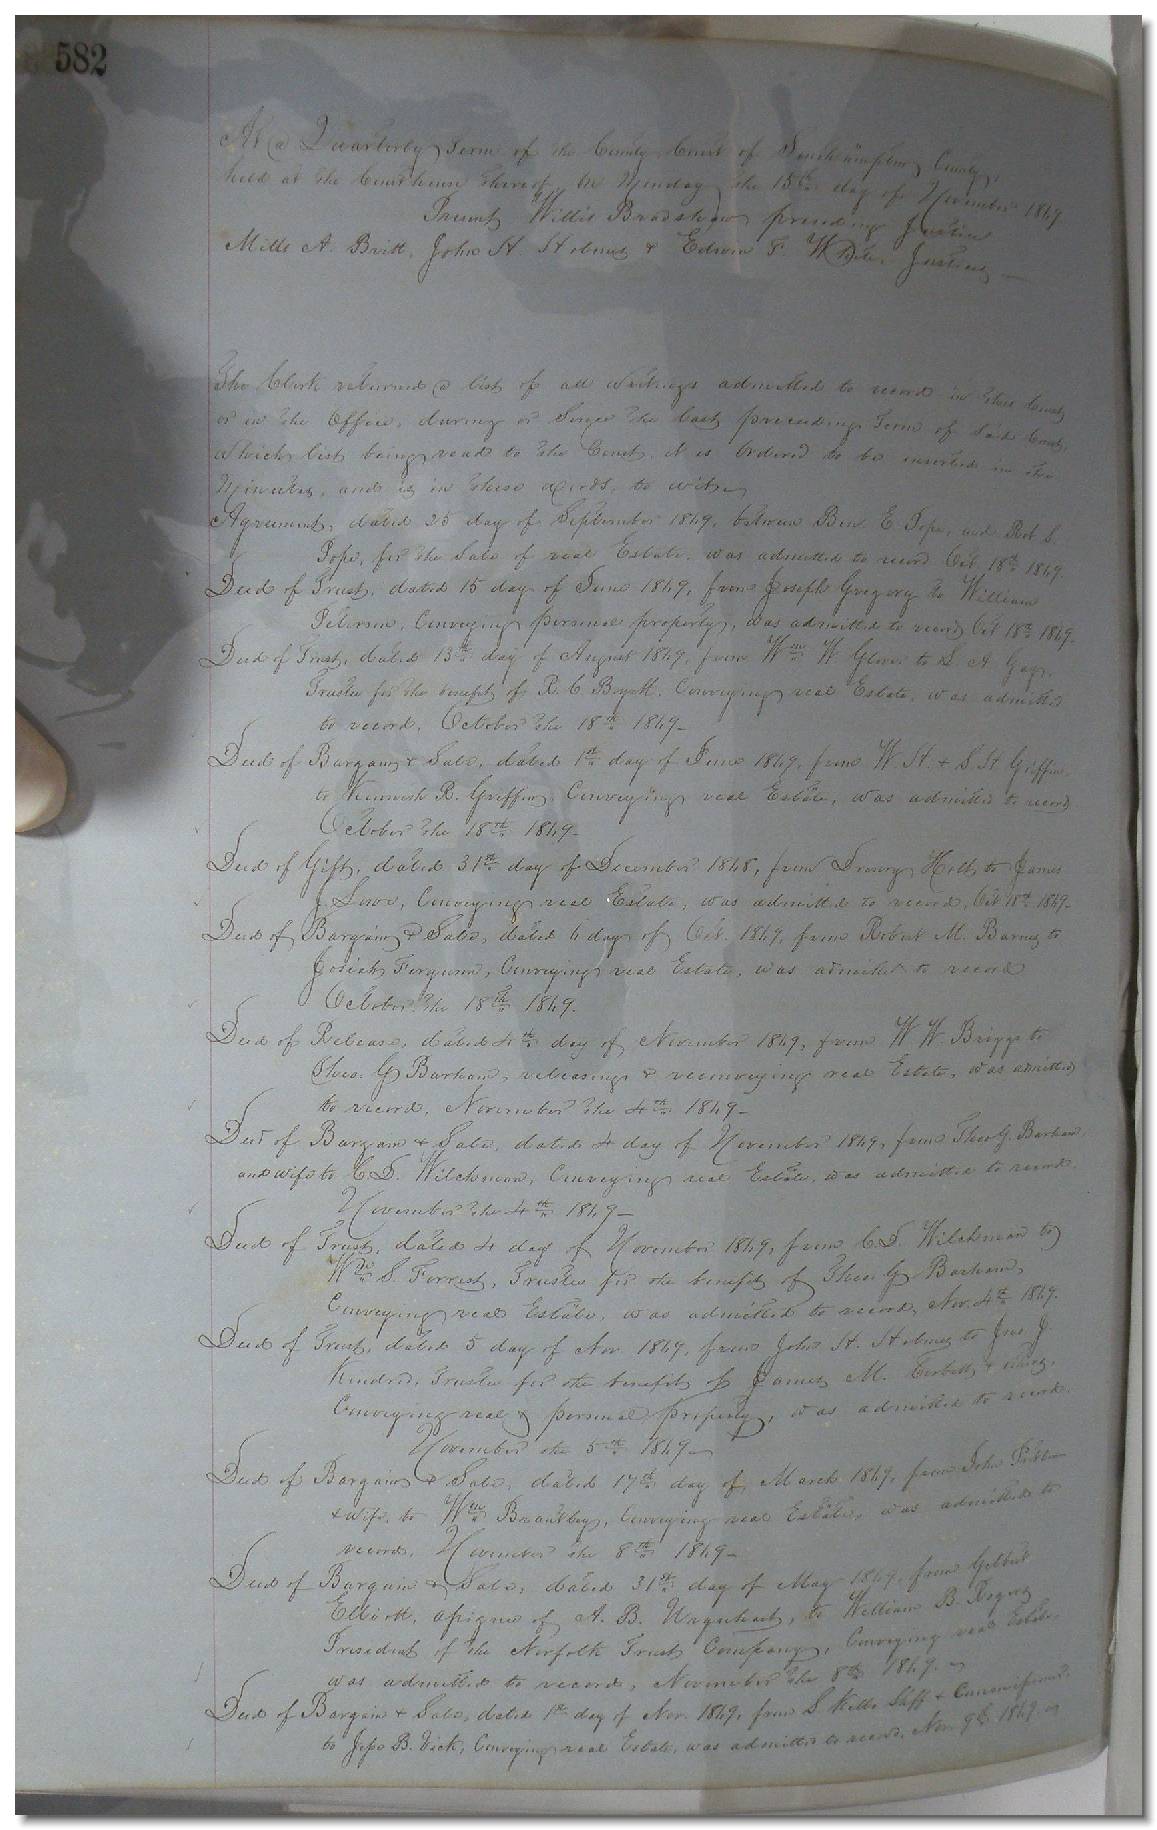 582
At a Quarterly Term of the County Court of Southampton County,
held at the Courthouse thereof, on Monday the 15th day of November 1869
Present Willis Bradshaw presiding Justice
Mills A. Britt, John H. Holmes & Edwin F. White, Justices
The Clerk returned a list of all writings admitted to record in this Court
or in the Office, during or Since the last preceeding Term of said Court,
which list being read to the Court, it is Ordered to be inserted in the
Minutes, and is in these words, to wit:
Agreement, dated 25 day of September 1869, between Ben. E. Pope, and Rob S.
Pope, for the Sale of real Estate, was admitted to record Oct. 18th 1869.
Deed of Trust, dated 15 day of June 1869, from Joseph Gregory to William
Peterson, Conveying personal property, was admitted to record Oct 18th 1869.
Deed of Trust, dated 13th day of August 1869, from Wm W Glover to S. A. Gay,
Trustee for the benefit of R. C. Boyett, Conveying real Estate, was admitted
to record, October the 18th 1869-
Deed of Bargain & Sale, dated 1st day of June 1869, from W. H. & S. H Griffin
to R. Griffin, Conveying real Estate, was admitted to record
October the 18th 1869-
Deed of Gift, dated 31st day of December 1868, from Drewry Holt, to James
J. Lowe, Conveying real Estate, was admitted to record, Oct 18th 1869-
Deed of Bargain & Sale, dated 6 day of Oct. 1869, from Robert M. Barnes to
Josiah Ferguson, Conveying real Estate, was admitted to record
October the 18th 1869.
Deed of Release, dated 4th day of November 1869, from W W Briggs to
Theo. G Barham, releasing & reconveying real Estate, was admitted
to record, November the 4th 1869-
Deed of Bargain & Sale, dated 4 day of November 1869, from Theo G. Barham
and wife to C. D. Wilchman, Conveying real Estate, was admitted to record.
November the 4th 1869-
Deed of Trust, dated 4 day of November 1869, from C. D. Wilchman to
Wm S. Forrest, Trustee for the benefit of Theo. G Barham,
Conveying real Estate, was admitted to record, Nov. 4th 1869.
Deed of Trust, dated 5 day of Nov 1869, from John H. Holmes to Jno J.
Kindred, Trustee for the benefit of James M. Corbett & others,
Conveying real & personal property, was admitted to record.
November the 5th 1869-
Deed of Bargain & Sale, dated 17th day of March 1869, from John
& wife, to Wm Brantley, Conveying real Estate, was admitted to
record, November the 8th 1869-
Deed of Bargain & Sale, dated 31st day of May 1869, from Gilbert
Elliott, assignee of A. B. to William B. Rogers
President of the Norfolk Trust Company, Conveying real Estate,
was admitted to record, November the 8th 1869.
Deed of Bargain & Sale, dated 1st day of Nov. 1869, from S Kello Shff &
to Jesse B. Vick, Conveying real Estate, was admitted to record, Nov 9th 1869.